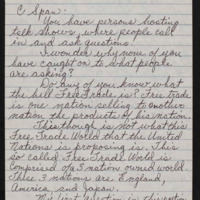 C Span:-
You have persons hosting
talk shows, where people call
in and ask questions.
I wonder why none of you
have caught on to what people
are asking?
Do any of you know what
the hell Free Trade is? Free trade
is one nation selling to another
nation the products of his nation.
This though is not what this
Free Trade World that the United
Nations is proposing is. This
so called Free Trade World is
Comprised of a 3 nation owned world.
These 3 nations are, England,
America and Japan.
My first question in this